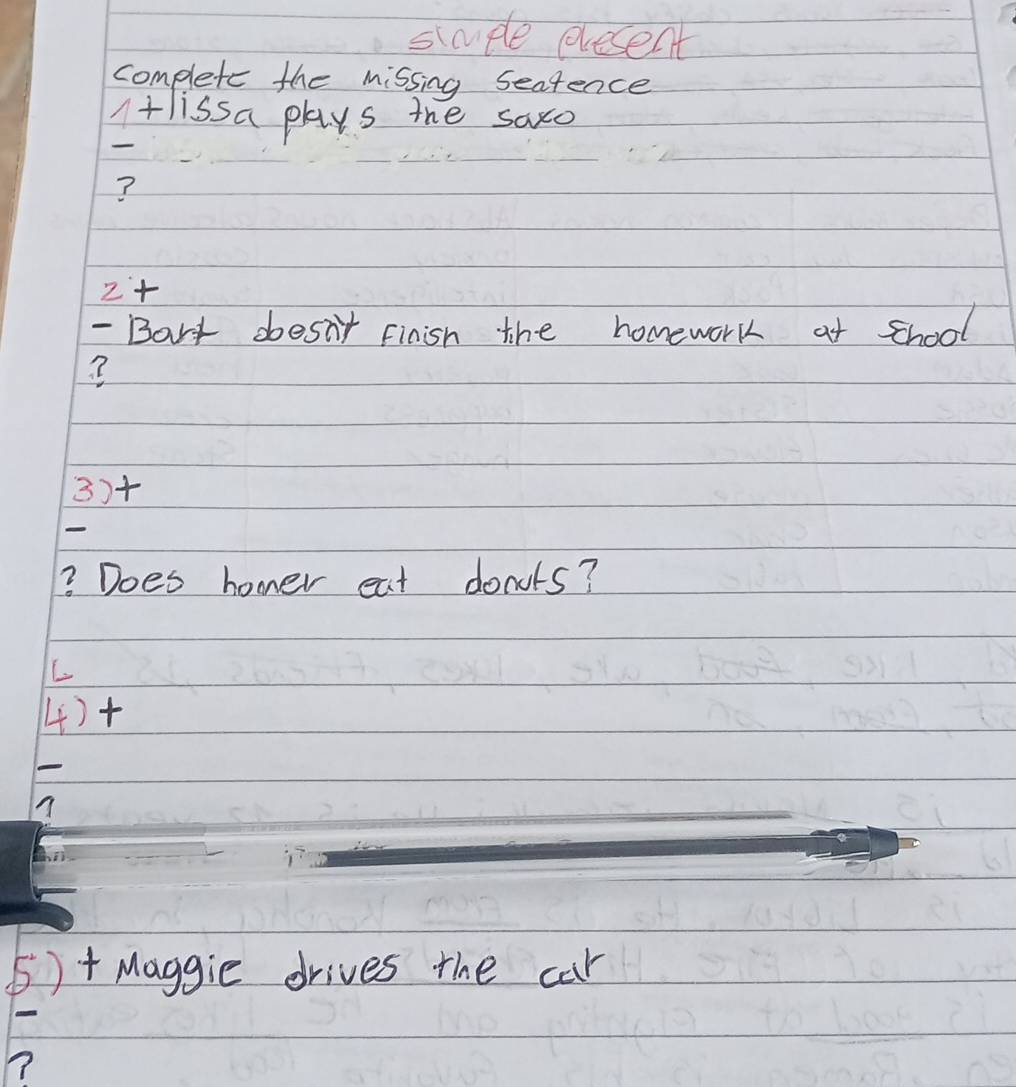 simple present
complete the missing sentence
1 + lissa plays the saxo
-
?
2 +
- Bart doesn't Finish the homework at School
?
3) +
-
? Does homer eat donuts?
L
4) +
-
?
5) + Maggie drives the car
-
?